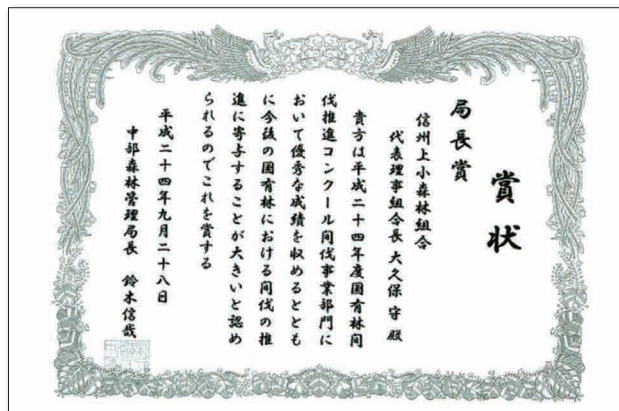 賞状
局長賞
信州上小森林組合
代表理事組合長 大久保守 殿
貴方は平成二十四年度国有林間
伐推進コンクール間伐事業部門に
おいて優秀な成績を収めるととも
に今後の国有林における間伐の推
進に寄与することが大きいと認め
られるのでこれを賞する
平成二十四年九月二十八日
中部森林管理局長 鈴木信哉